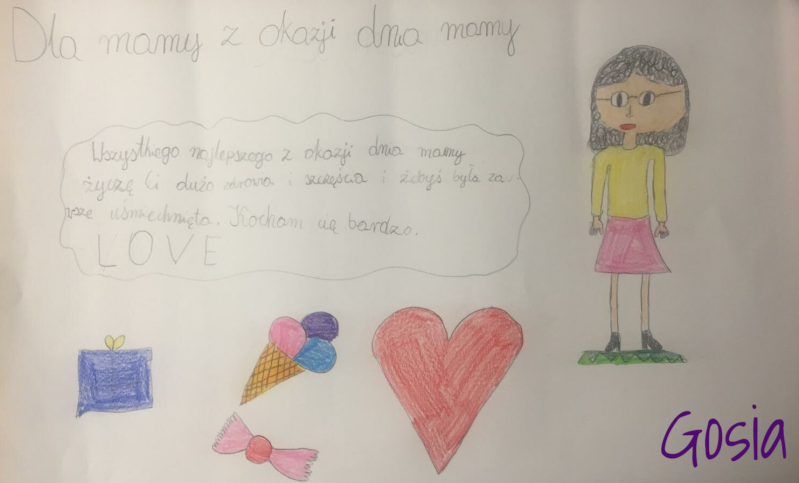 Dla mamy z okazji dnia mamy
Wszystkiego najlepszego z okazji dnia mamy
życzę Ci dużo zdrowia i szczęścia i żebyś była za-
wsze uśmiechnięta. Kocham cię bardzo.
LOVE
Gosia